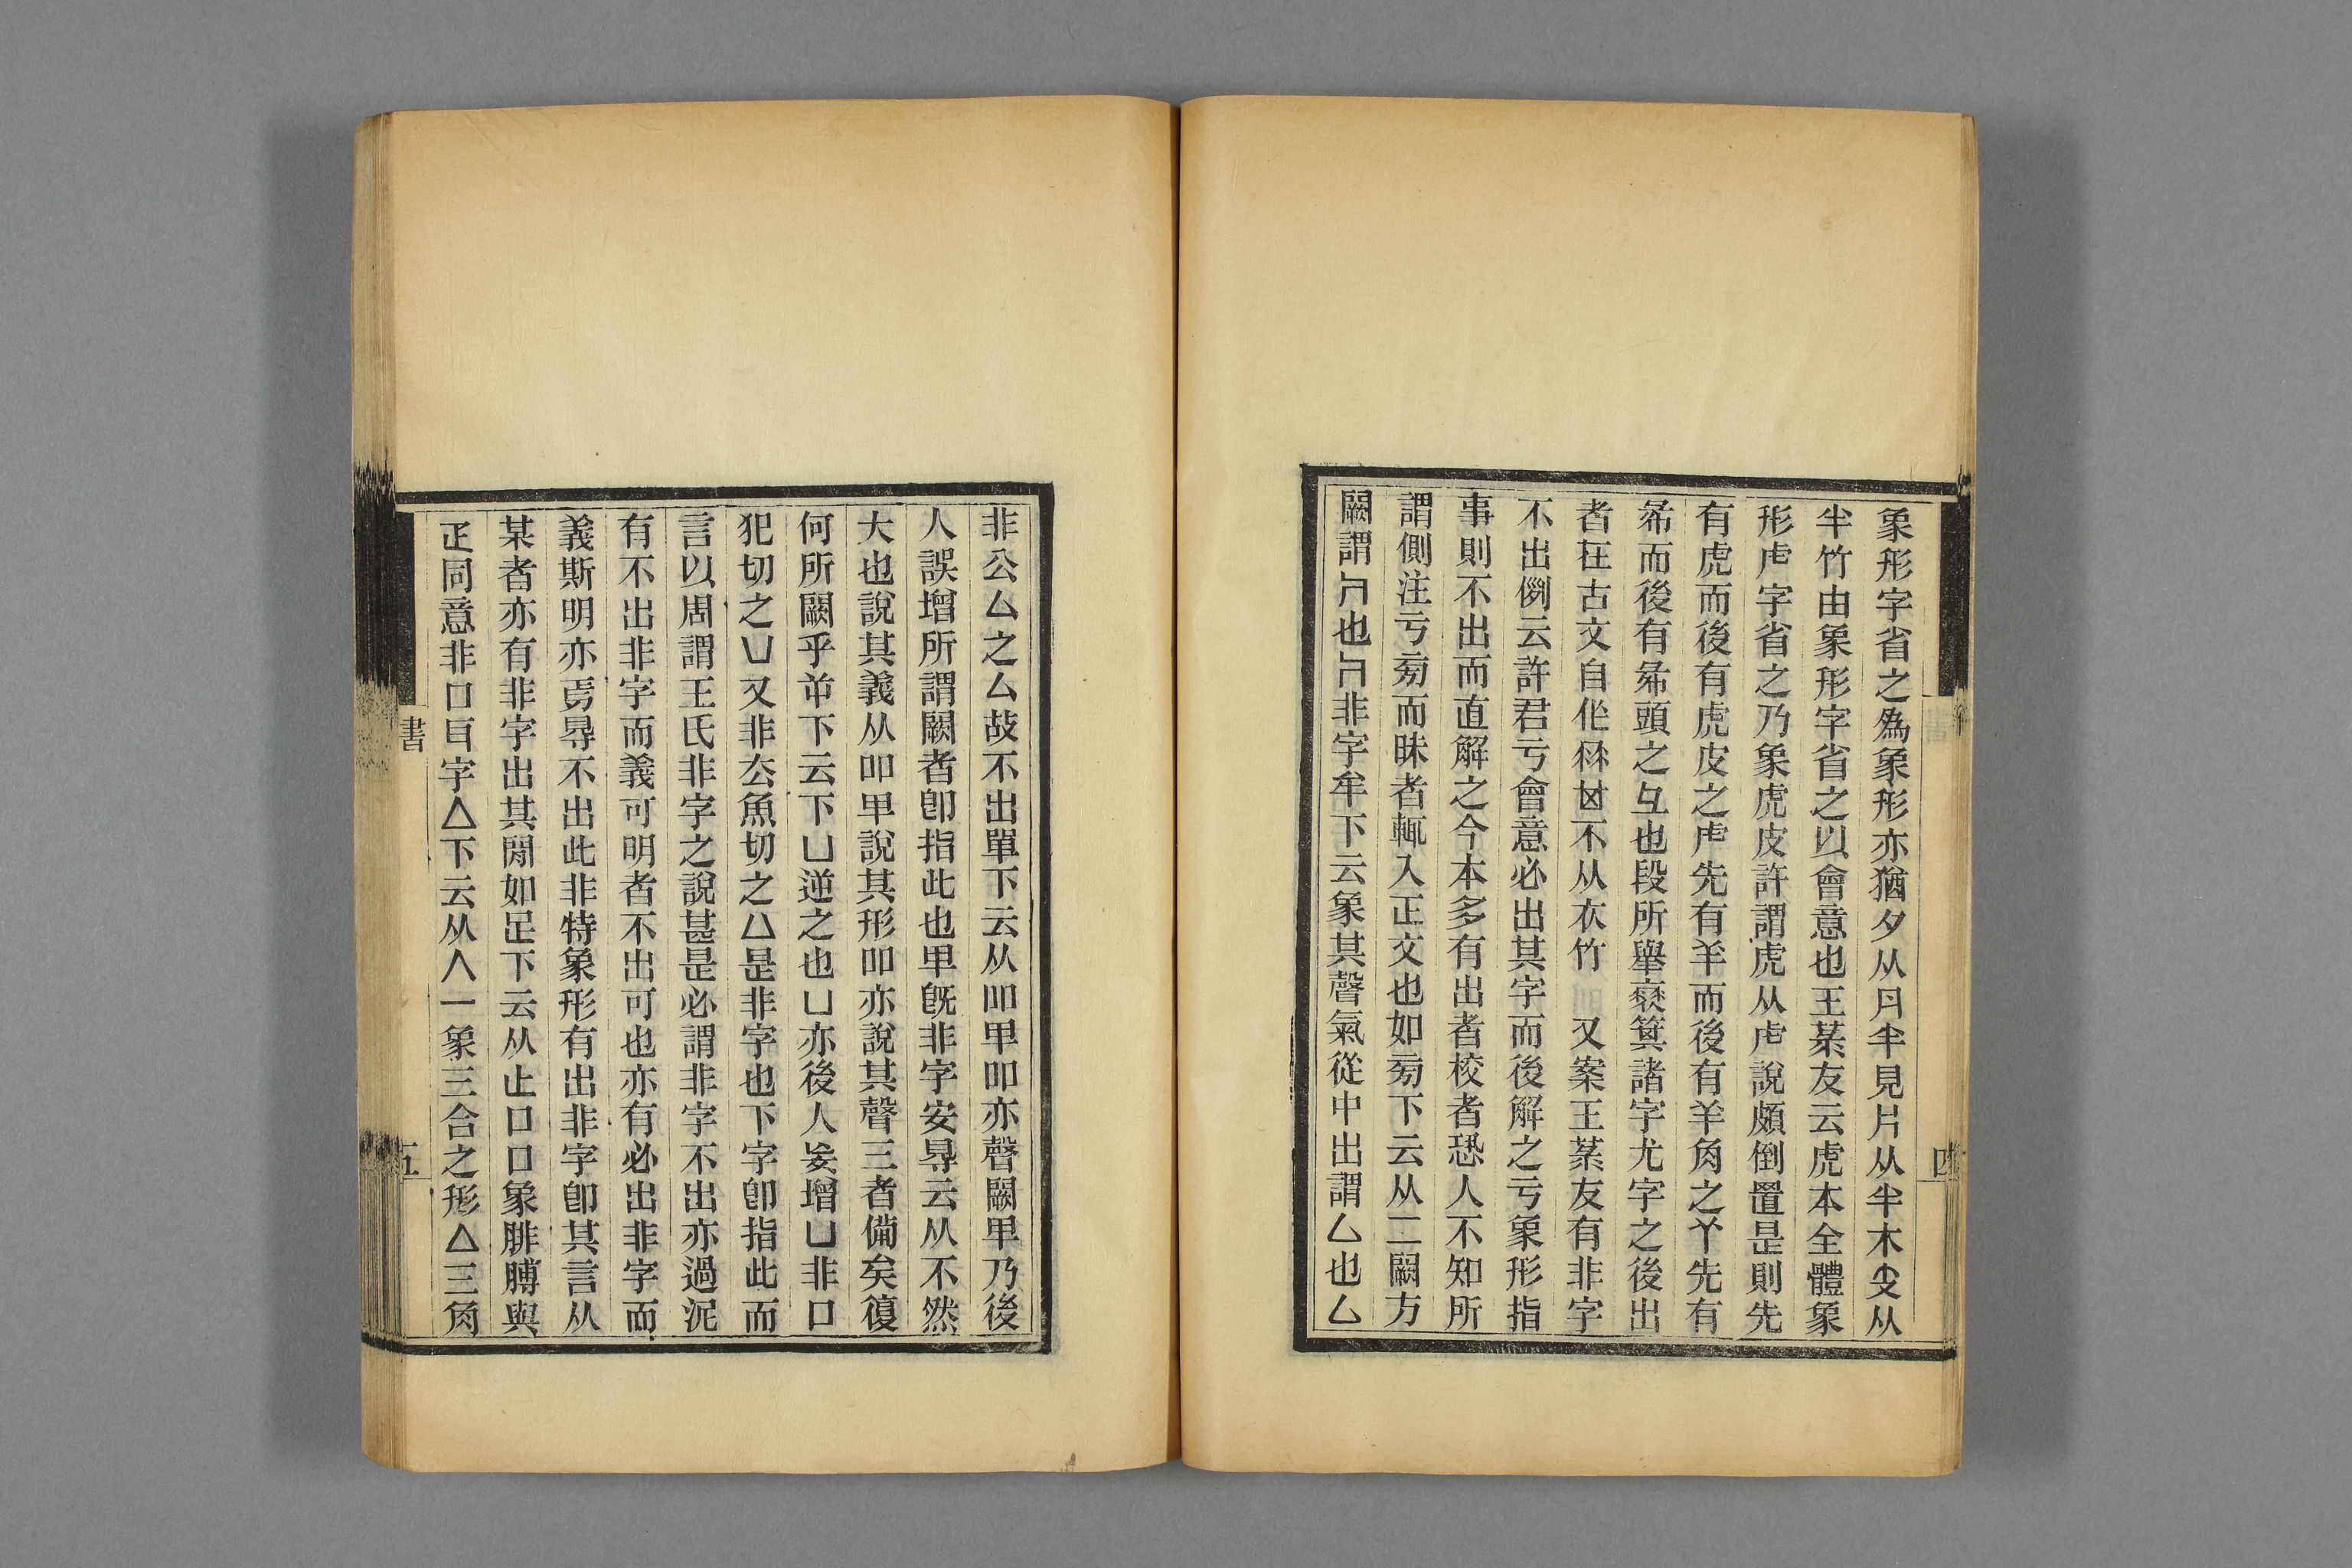 象形字省之爲象形亦猶夕从月半見片从半木支从
半竹由象形字省之以會意也王菉友云虎本全體象
形虍字省之乃象虎皮許謂虎从虍說顚倒置是則先
有虎而後有虎皮之虍先有羊而後有羊角之丫先有
㣇而後有㣇頭之彑也段所舉裘箕諸字尤字之後出
者在古文自作不从衣竹又案王菉友有非字
不出例云許君亏會意必出其字而後解之亏象形指
事則不出而直解之今本多有出者校者恐人不知所
謂側注亏㫄而昧者輒入正文也如㫄下云从二闕方
闕謂𠂆也非字牟下云象其聲氣從中出謂厶也厶
非公厶之厶故不出單下云从吅𠦒吅亦聲闕𠦒乃後
人誤增所謂闕者卽指此也𠦒旣非字安㝵云从不然
大也說其義从吅𠦒說其形吅亦說其聲三者備矣復
何所闕乎㡿下云下凵逆之也凵亦後人妄增凵非口
犯切之凵又非厺魚切之凵是非字也下字卽指此而
言以周謂王氏非字之說甚是必謂非字不出亦過泥
有不出非字而義可明者不出可也亦有必出非字而
義斯明亦焉㝵不出此非特象形有出非字卽其言从
某者亦有非字出其閒如足下云从止口口象腓膊與
疋同意非口耳字亼下云从入一象三合之形△三角
書
四
五